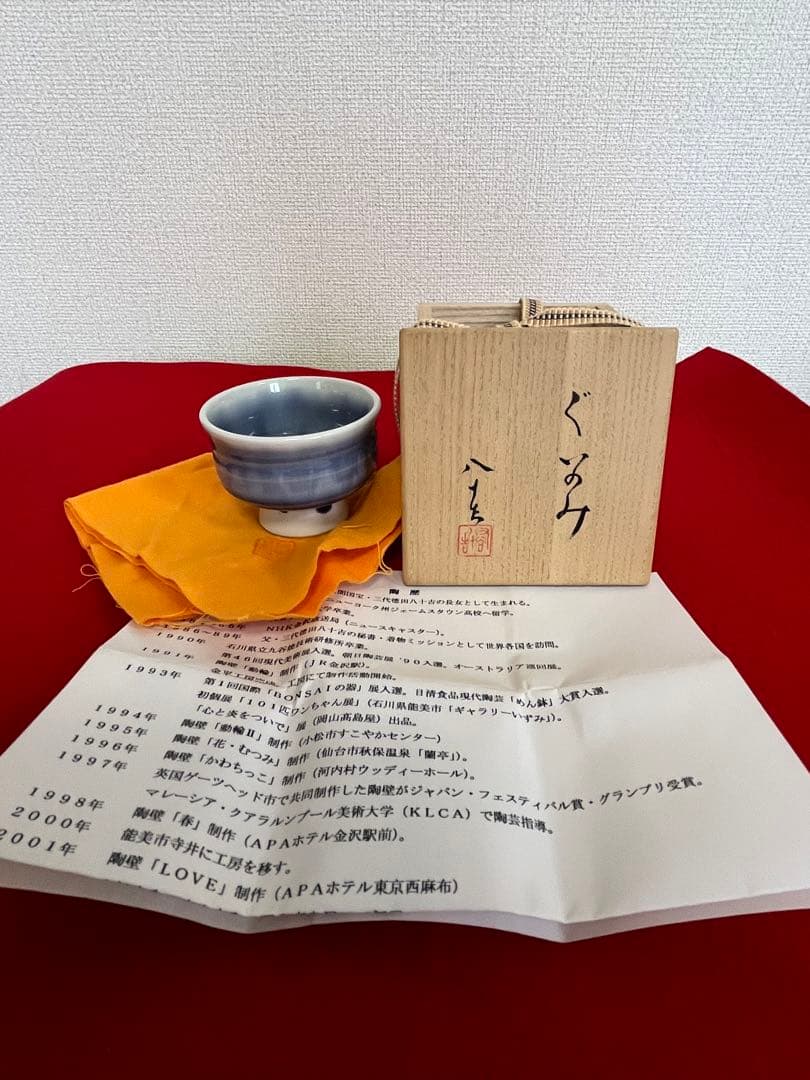 ぐいのみ
八十吉
陶 歴
間国宝・三代徳田八十吉の長女として生まれる。
ニューヨーク州ジェームスタウン高校へ留学。
学卒業。
NHK金沢放送局(ニュースキャスター)。
86~89年 父・三代徳田八十吉の秘書・着物ミッションとして世界各国を訪問。
1990年 石川県立九谷焼技術研修所卒業。
第46回現代美術展入選。朝日陶芸展'90入選。オーストラリア巡回展。
1991年 陶壁「動輪」制作(JR金沢駅)。
工房にて制作活動開始。
1993年 第1回国際「BONSAIの器」展入選。日清食品現代陶芸「めん鉢」大賞入選。
初個展「101匹ワンちゃん展」(石川県能美市「ギャラリーいずみ」)。
「心と炎をついで」展(岡山高島屋)出品。
1994年 陶壁「動輪Ⅱ」制作(小松市すこやかセンター)
1995年 陶壁「花・むつみ」制作(仙台市秋保温泉「蘭亭」)。
1996年 陶壁「かわちっこ」制作(河内村ウッディーホール)。
1997年 英国ゲーツヘッド市で共同制作した陶壁がジャパン・フェスティバル賞・グランプリ受賞。
マレーシア・クアラルンプール美術大学(KLCA)で陶芸指導。
1998年 陶壁「春」制作(APAホテル金沢駅前)。
2000年 能美市寺井に工房を移す。
2001年 陶壁「LOVE」制作(APAホテル東京西麻布)